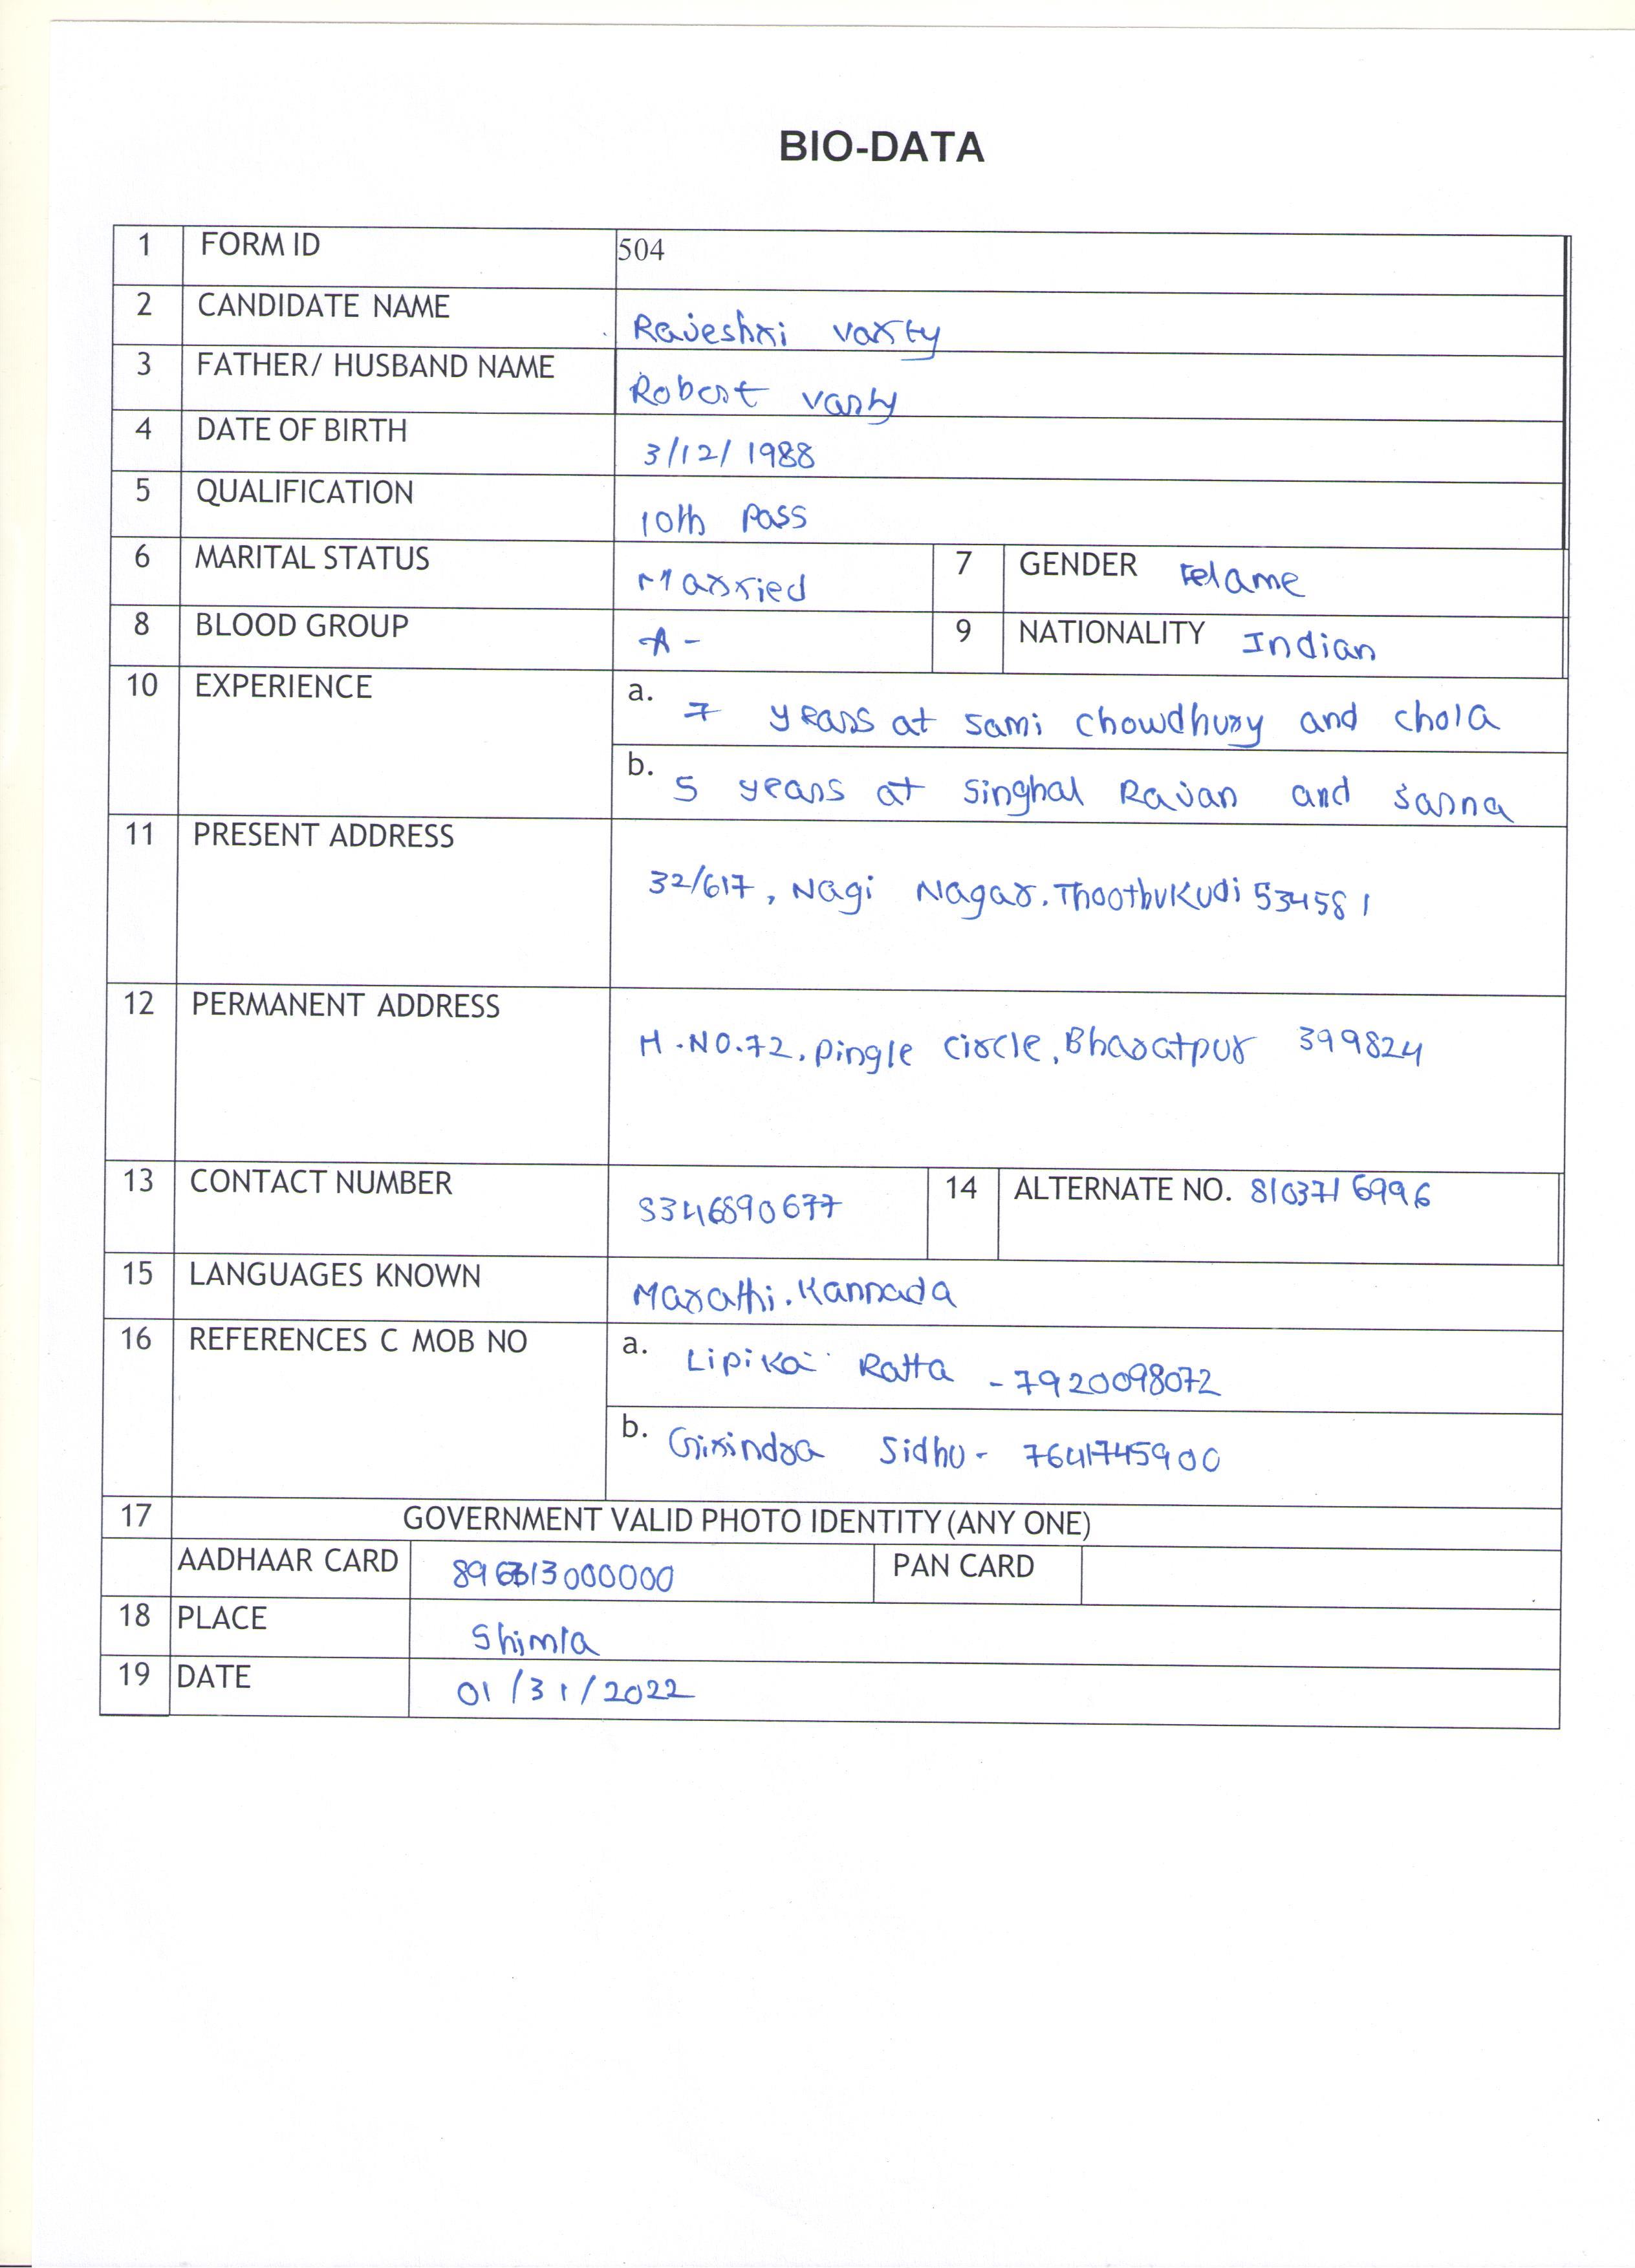 BIO-DATA
1 FORM ID 504
2 CANDIDATE NAME Rajeshri varty
3 FATHER/ HUSBAND NAME Robert varty
4 DATE OF BIRTH 3/12/1988
5 QUALIFICATION 10th Pass
6 MARITAL STATUS Married 7 GENDER Felame
8 BLOOD GROUP A- 9 NATIONALITY Indian
10 EXPERIENCE a. 7 years at sami chowdhury and chola
b. 5 years at singhal Rajan and sarna
11 PRESENT ADDRESS
32/617, Nagi Nagar. Thoothukudi 534581
12 PERMANENT ADDRESS
H.NO.72, pingle circle, Bharatpur 399824
13 CONTACT NUMBER 14 ALTERNATE NO. 8103716996
15 LANGUAGES KNOWN Marathi. Kannada
16 REFERENCES C MOB NO a. Lipika Ratta - 7920098072
b. Girindra Sidhu - 7641745900
17 GOVERNMENT VALID PHOTO IDENTITY (ANY ONE)
AADHAAR CARD PAN CARD
18 PLACE Shimla
19 DATE 01/31/2022